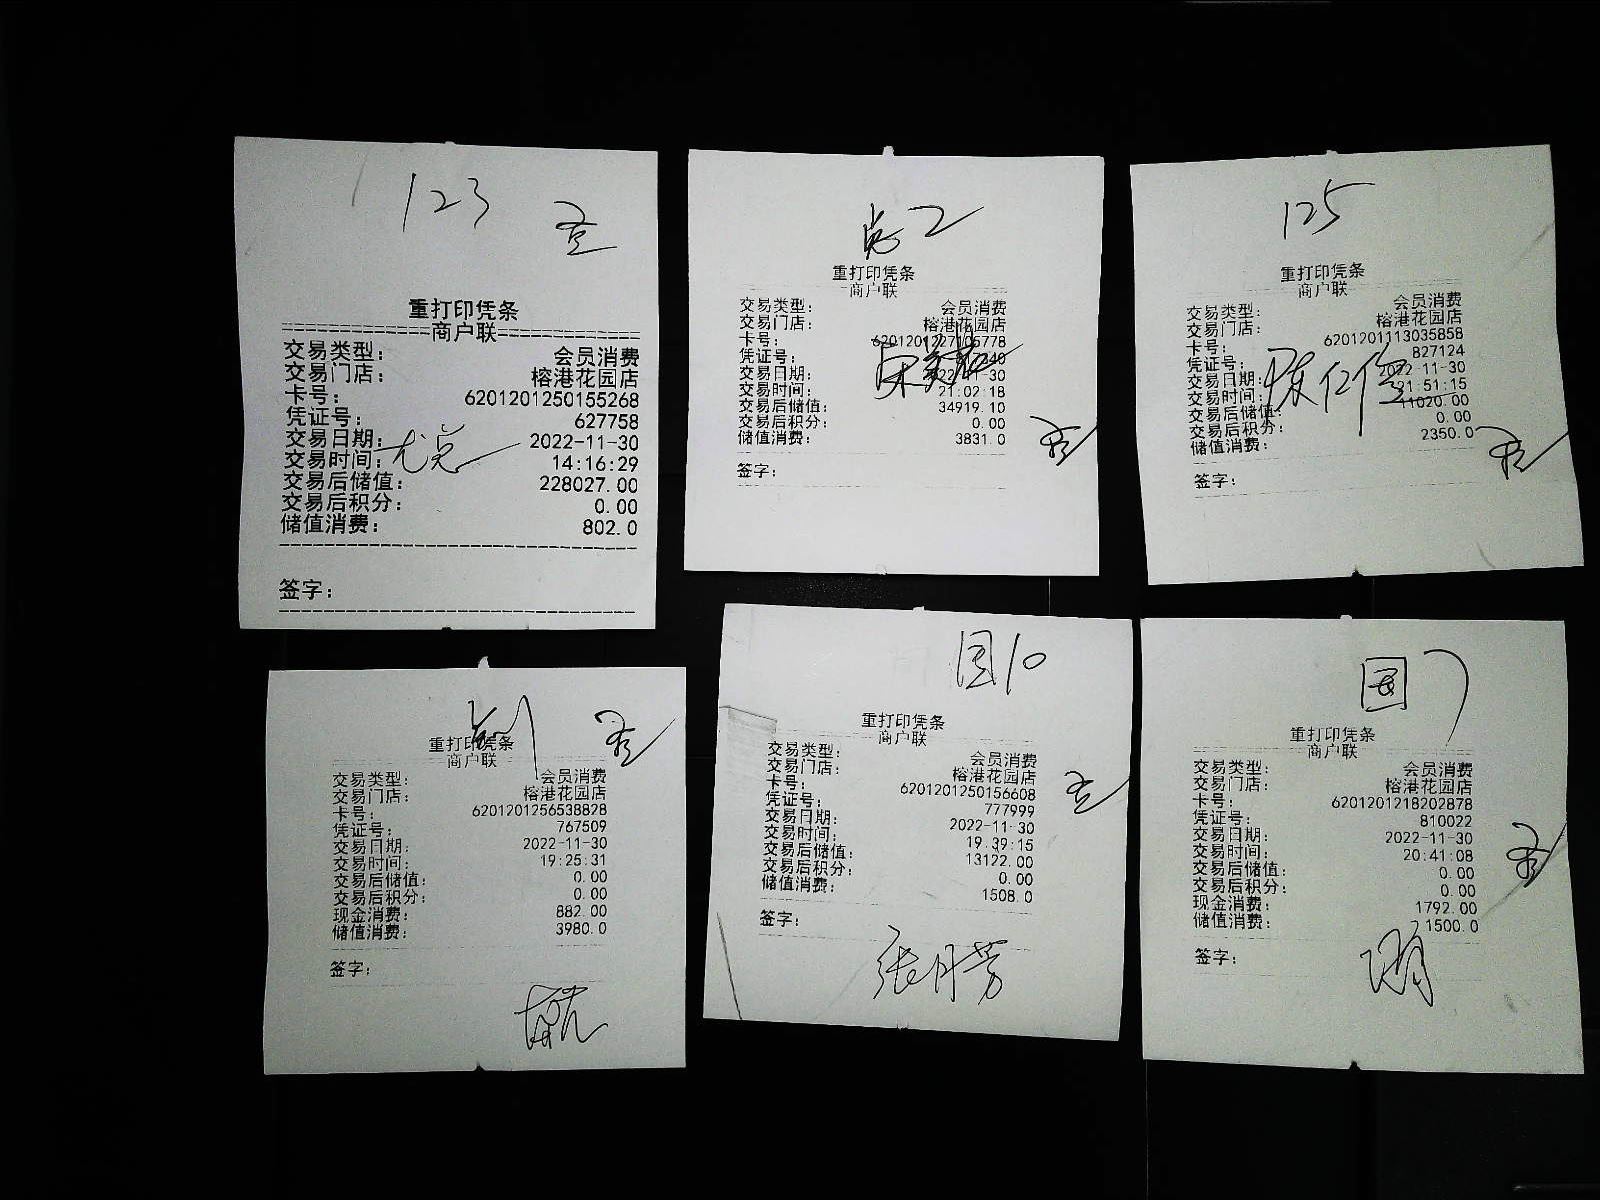 123
重打印凭条
商户联
交易类型: 会员消费
交易门店: 榕港花园店
卡号: 6201201250155268
凭证号: 627758
交易日期: 2022-11-30
交易时间: 14:16:29
交易后储值: 228027.00
交易后积分: 0.00
储值消费: 802.0
签字:
重打印凭条
商户联
交易类型: 会员消费
交易门店: 榕港花园店
卡号:
凭证号:
交易日期: 2022-11-30
交易时间: 21:02:18
交易后储值: 34919.10
交易后积分: 0.00
储值消费: 3831.0
签字:
125
重打印凭条
商户联
交易类型: 会员消费
交易门店: 榕港花园店
卡号: 6201201113035858
凭证号: 827124
交易日期: 2022-11-30
交易时间: 21:51:15
交易后储值: 11020.00
交易后积分: 0.00
储值消费: 2350.0
签字:
重打印凭条
商户联
交易类型: 会员消费
交易门店: 榕港花园店
卡号: 6201201256538828
凭证号: 767509
交易日期: 2022-11-30
交易时间: 19:25:31
交易后储值: 0.00
交易后积分: 0.00
现金消费: 882.00
储值消费: 3980.0
签字:
国10
重打印凭条
商户联
交易类型: 会员消费
交易门店: 榕港花园店
卡号: 6201201250156608
凭证号: 777999
交易日期: 2022-11-30
交易时间: 19:39:15
交易后储值: 13122.00
交易后积分: 0.00
储值消费: 1508.0
签字:
张月芳
国7
重打印凭条
商户联
交易类型: 会员消费
交易门店: 榕港花园店
卡号: 6201201218202878
凭证号: 810022
交易日期: 2022-11-30
交易时间: 20:41:08
交易后储值: 0.00
交易后积分: 0.00
现金消费: 1792.00
储值消费: 1500.0
签字: